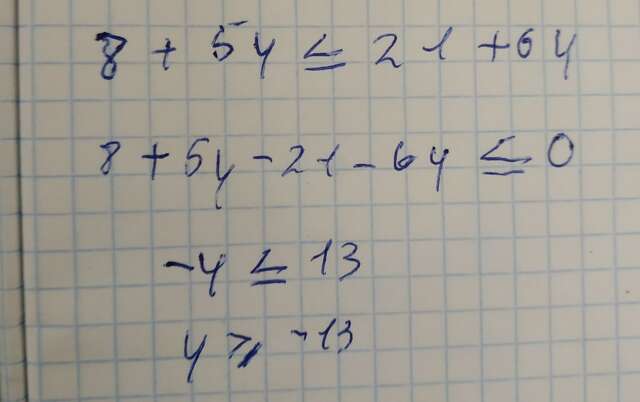 8 + 5y ≤ 21 + 6y
8 + 5y - 21 - 6y ≤ 0
-y ≤ 13
y ≥ -13